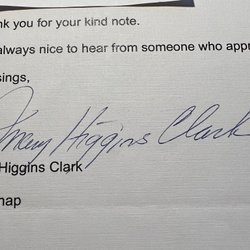 nk you for your kind note.
always nice to hear from someone who appr
sings,
Mary Higgins Clark
Higgins Clark
nap